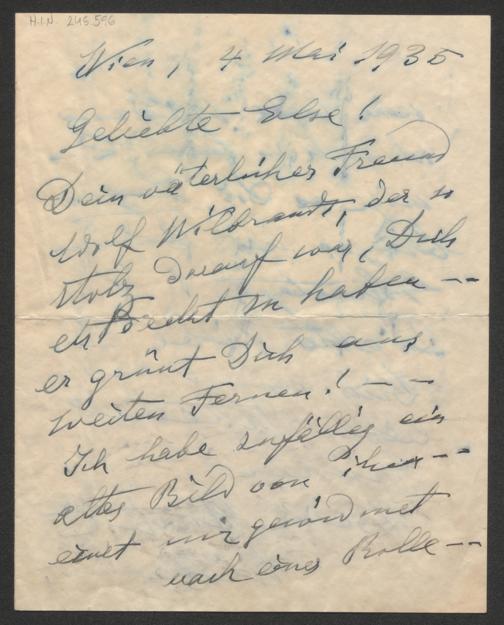 H.I.N. 245.596
Wien, 4 Mai 1935
Geliebte Else!
Dein väterlicher Freund
Adolf Wilbrandt, der so
stolz darauf war, Dich
entdeckt zu haben --
er grüßt Dich aus
weiten Fernen! --
Ich habe zufällig ein
altes Bild von ihm --
einst mir gewidmet
nach einer Rolle --